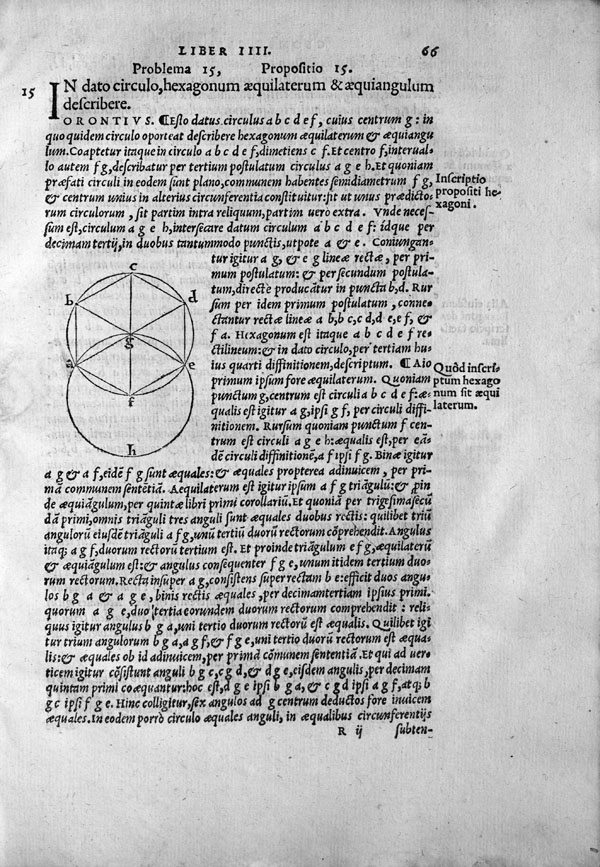 LIBER IIII. 66
Problema 15, Propositio 15.
15 IN dato circulo, hexagonum æquilaterum & æquiangulum
describere.
ORONTIVS. ¶Esto datus circulus a b c d e f, cuius centrum g: in
quo quidem circulo oporteat describere hexagonum æquilaterum & æquiangu
lum. Coaptetur itaque in circulo a b c d e f, dimetiens c f. Et centro f, interual-
lo autem f g, describatur per tertium postulatum circulus a g e h. Et quoniam
præfati circuli in eodem sunt plano, communem habentes semidiametrum f g,
& centrum unius in alterius circunferentia constituitur: fit ut unus prædicto-
rum circulorum, sit partim intra reliquum, partim uero extra. Vnde neces-
sum est, circulum a g e h, intersecare datum circulum a b c d e f: idque per
decimam tertij, in duobus tantummodo punctis, utpote a & e. Coniungan-
Inscriptio
propositi he-
xagoni.
tur igitur a g, & e g lineæ rectæ, per pri-
mum postulatum: & per secundum postula-
tum, directè producātur in puncta b, d. Rur
sum per idem primum postulatum, conne-
ctantur rectæ lineæ a b, b c, c d, d e, e f, &
f a. Hexagonum est itaque a b c d e f re-
ctilineum: & in dato circulo, per tertiam hu-
ius quarti diffinitionem, descriptum. ¶Aio
primum ipsum fore æquilaterum. Quoniam
punctum g, centrum est circuli a b c d e f: æ-
qualis est igitur a g, ipsi g f, per circuli diffi-
nitionem. Rursum quoniam punctum f cen-
trum est circuli a g e h: æqualis est, per eā-
dē circuli diffinitionē, a f ipsi f g. Binæ igitur
Quòd inscri-
ptum hexago
num sit æqui
laterum.
c
b d
g
a e
f
h
a g & a f, eidē f g sunt æquales: & æquales propterea adinuicem, per pri-
mā communem sentētiā. Aequilaterum est igitur ipsum a f g triāgulū: & proin
de æquiāgulum, per quintæ libri primi corollariū. Et quoniā per trigesimāsecū
dā primi, omnis triāguli tres anguli sunt æquales duobus rectis: quilibet triū
angulorū eiusdē triāguli a f g, unū tertiū duorū rectorum cōprehendit. Angulus
itaq; a g f, duorum rectorū tertium est. Et proinde triāgulum e f g, æquilaterū
& æquiāgulum est: & angulus consequenter f g e, unum itidem tertium duo-
rum rectorum. Recta insuper a g, consistens super rectam b e: efficit duos angu-
los b g a & a g e, binis rectis æquales, per decimamtertiam ipsius primi.
quorum a g e, duo tertia eorundem duorum rectorum comprehendit: reli-
quus igitur angulus b g a, uni tertio duorum rectorū est æqualis. Quilibet igi
tur trium angulorum b g a, a g f, & f g e, uni tertio duorū rectorum est æqua-
lis: & æquales ob id adinuicem, per primā cōmunem sententiā. Et qui ad uer
ticem igitur cōsistunt anguli b g c, c g d, & d g e, eisdem angulis, per decimam
quintam primi coæquantur: hoc est, d g e ipsi b g a, & c g d ipsi a g f, atq; b
g c ipsi f g e. Hinc colligitur, sex angulos ad g centrum deductos fore inuicem
æquales. In eodem porrò circulo æquales anguli, in æqualibus circunferentijs
R ij subten-